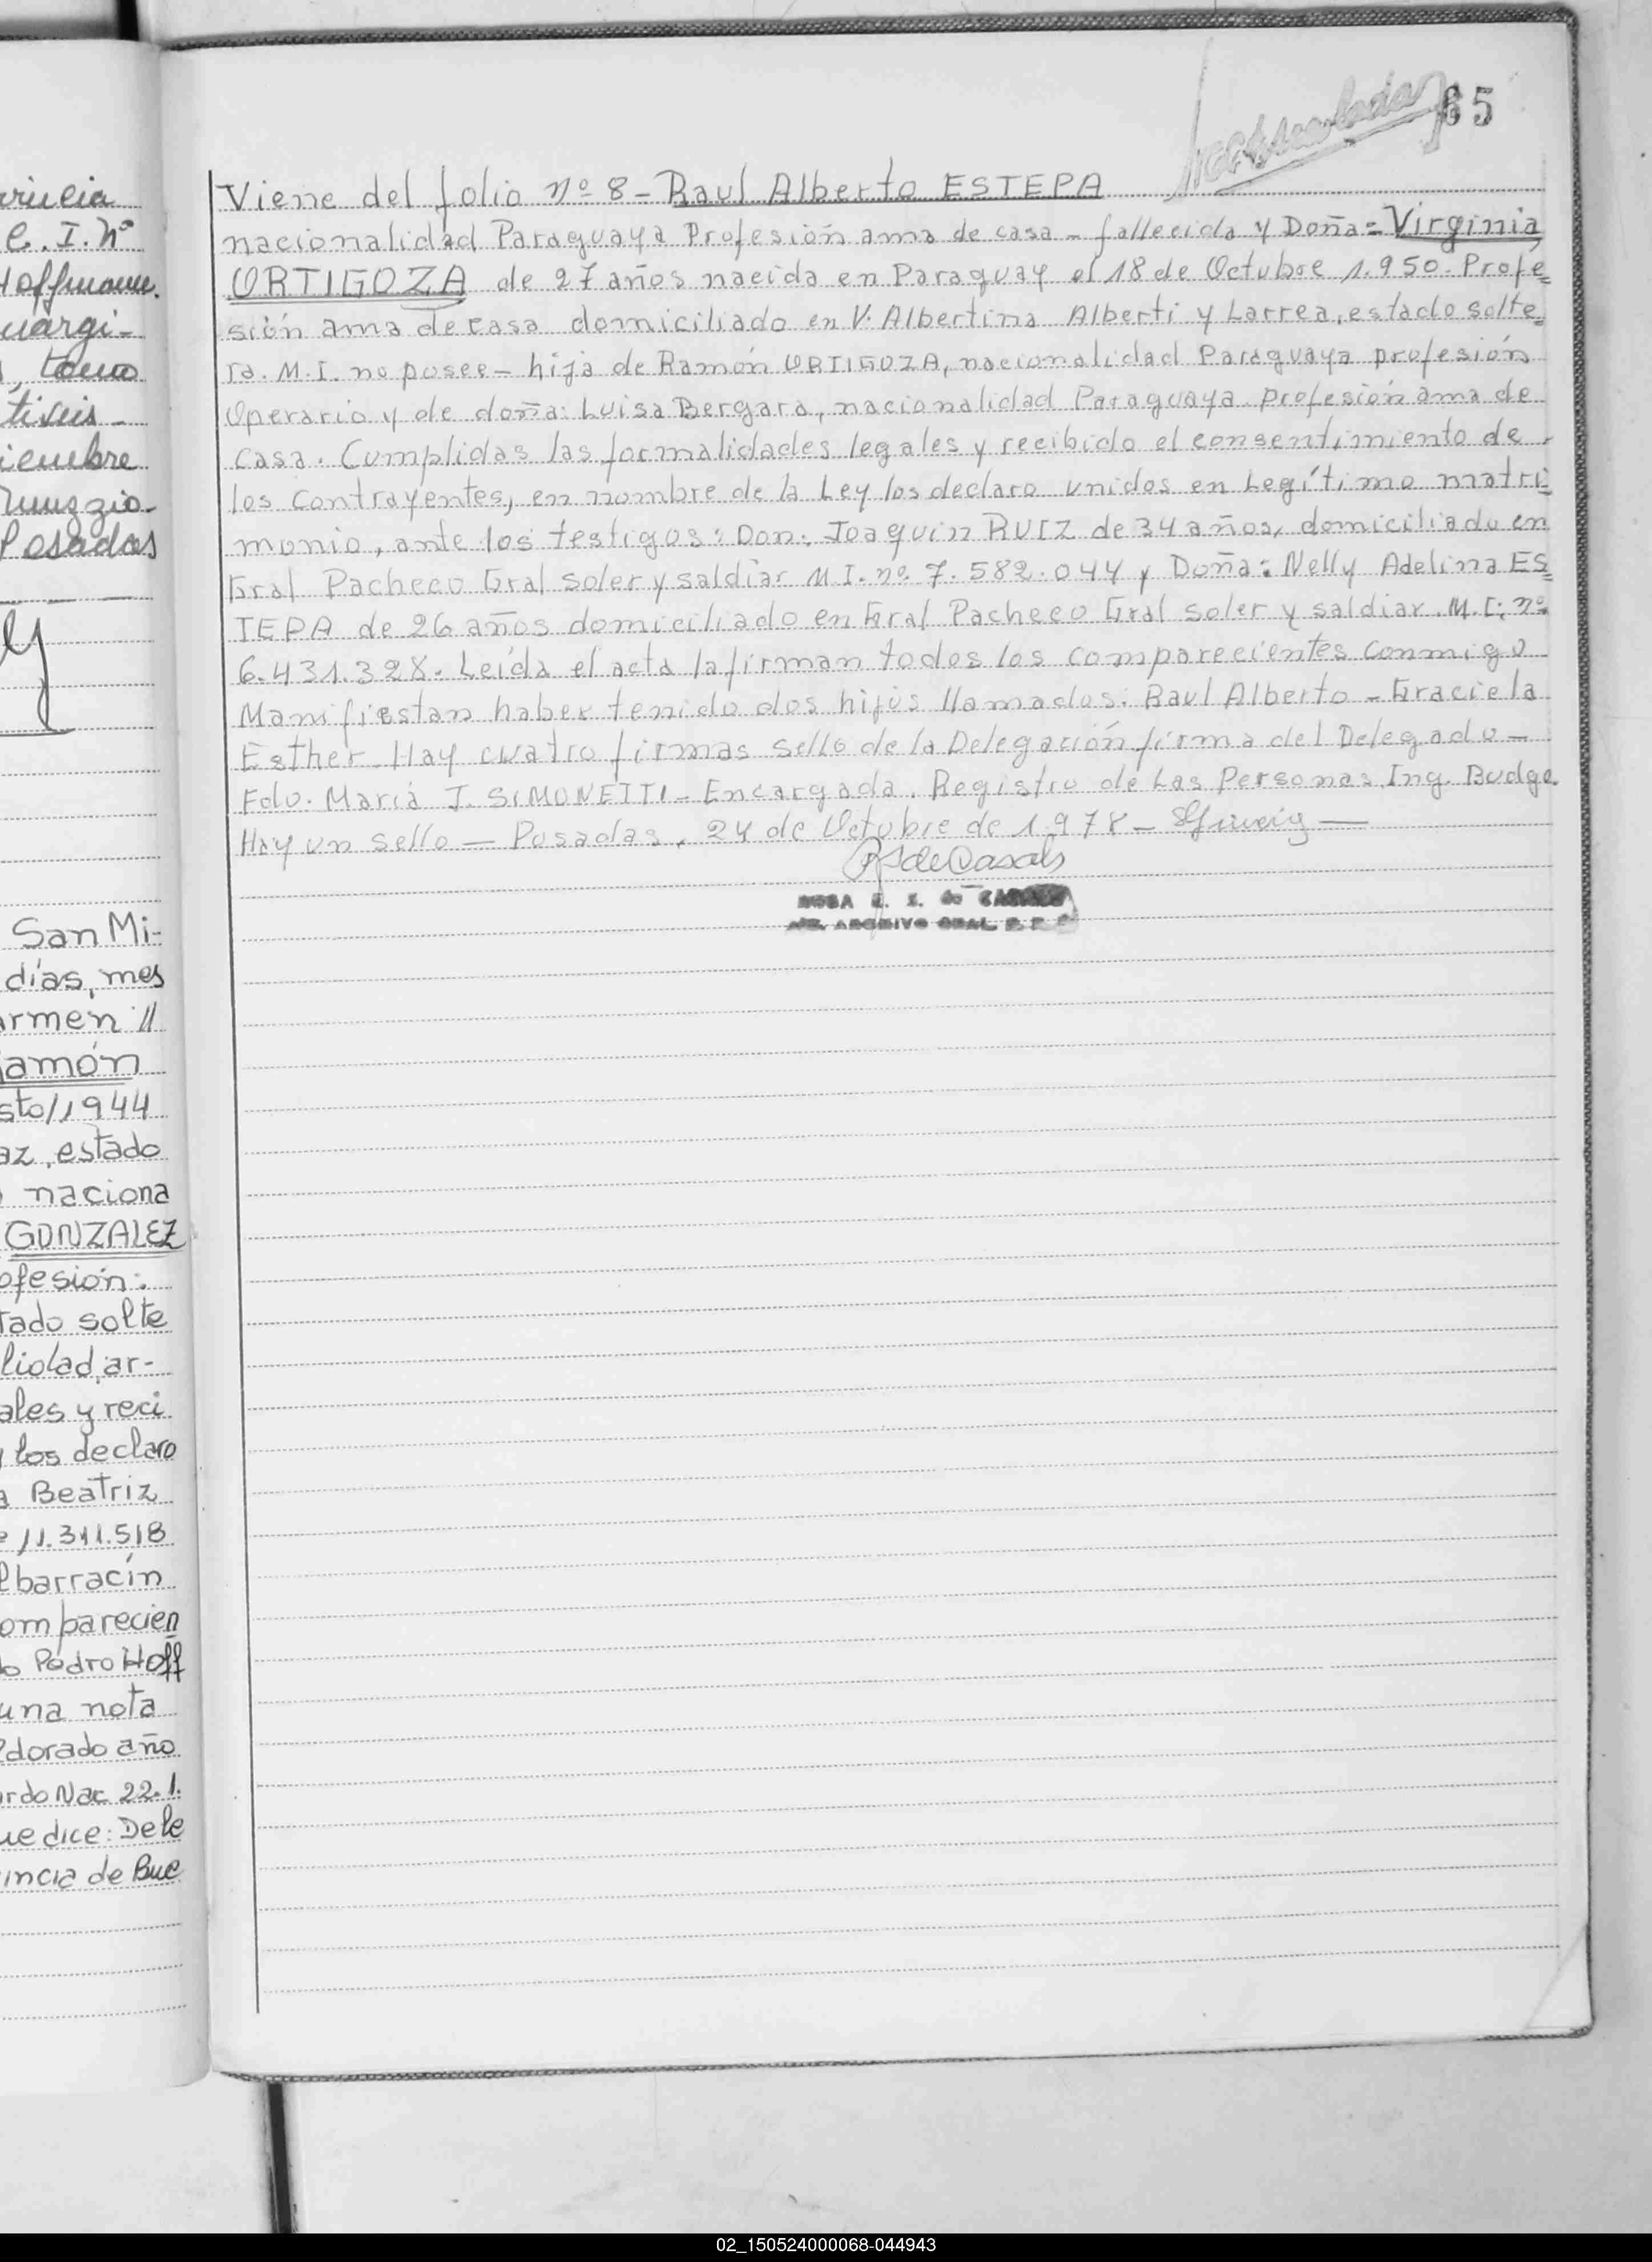 rucia
C. I. Nº
Hoffmann.
margi-
, tomo
tiseis-
iembre
Muzzio.
Posadas
San Mi-
días, mes
armen //
Ramón
sto/1944
az, estado
naciona
GONZALEZ
ofesión:
tado solte
lidad, ar-
ales y reci
y los declaro
a Beatriz
e 11.311.518
lbarracín
omparecien
o Pedro Hoff
una nota
ldorado año
rdo Nac 22.1.
ue dice: Dele
incia de Bue
65
Viene del folio nº 8 - Raul Alberto ESTEPA
nacionalidad Paraguaya Profesión ama de casa - fallecida y Doña = Virginia
ORTIGOZA de 27 años nacida en Paraguay el 18 de Octubre 1.950. Profe=
sión ama de casa domiciliado en V. Albertina Alberti y Larrea, estado solte=
ra. M.I. no posee - hija de Ramón ORTIGOZA, nacionalidad Paraguaya profesión
Operario y de doña: Luisa Bergara, nacionalidad Paraguaya. profesión ama de
casa. Cumplidas las formalidades legales y recibido el consentimiento de
los contrayentes, en nombre de la Ley los declaro unidos en Legítimo matri=
monio, ante los testigos: Don: Joaquín RUIZ de 34 años, domiciliado en
Gral Pacheco Gral soler y saldiar M.I. nº. 7.582.044 y Doña: Nelly Adelina ES=
TEPA de 26 años domiciliado en Gral Pacheco Gral soler y saldiar. M.I: nº
6.431.328. Leída el acta la firman todos los comparecientes conmigo
Manifiestan haber tenido dos hijos llamados: Raul Alberto - Graciela
Esther. Hay cuatro firmas sello de la Delegación firma del Delegado -
Fdo. María J. SIMONETTI - Encargada. Registro de Las Personas, Ing. Budge.
Hay un sello — Posadas, 24 de Octubre de 1978 -
R J de Casals
ROSA de CASALS
ARCHIVO GRAL. R. P.
02_150524000068-044943